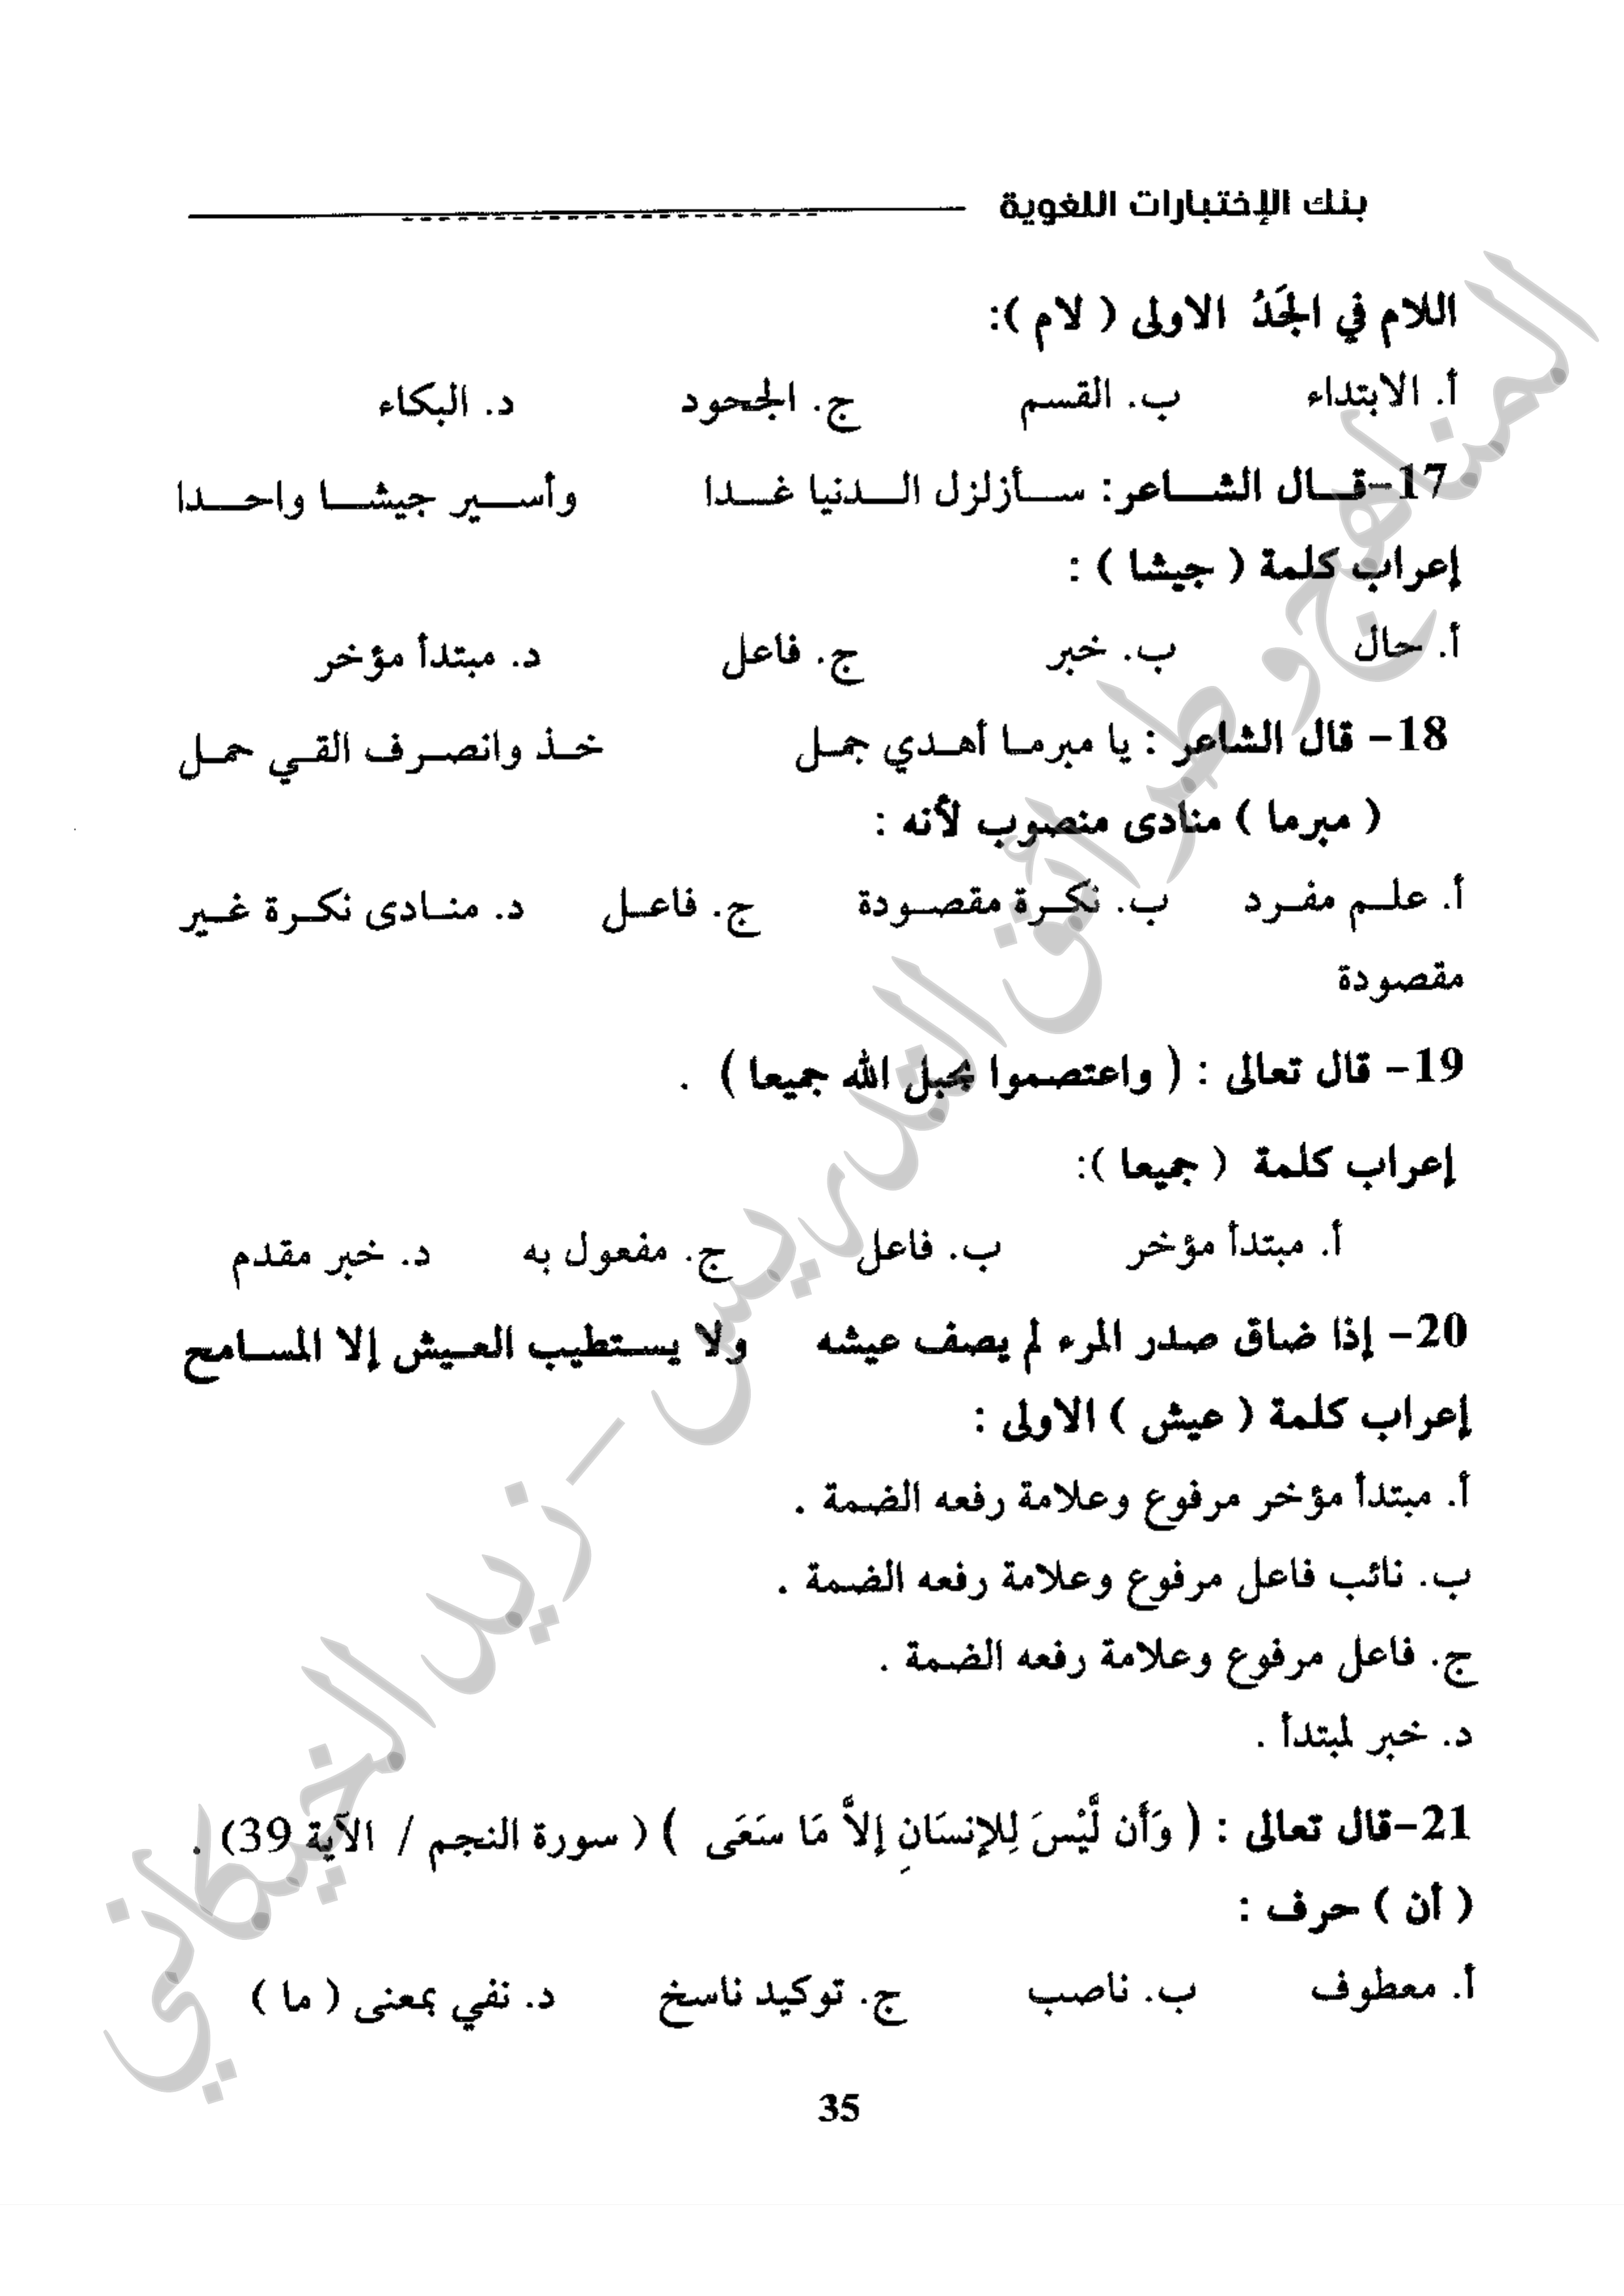 بنك الإختبارات اللغوية
اللام في الجَدُ الاولى ( لام ):
أ. الابتداء ب. القسم ج. الجحود د. البكاء
17-قال الشاعر: سأزلزل الدنيا غدا وأسير جيشا واحدا
إعراب كلمة ( جيشا ) :
أ. حال ب. خبر ج. فاعل د. مبتدأ مؤخر
18- قال الشاعر : يا مبرما أهدي جمل خذ وانصرف القي حمل
( مبرما ) منادى منصوب لأنه :
أ. علم مفرد ب. نكرة مقصودة ج. فاعل د. منادى نكرة غير
مقصودة
19- قال تعالى : ( واعتصموا بحبل الله جميعا ) .
إعراب كلمة ( جميعا ):
أ. مبتدأ مؤخر ب. فاعل ج. مفعول به د. خبر مقدم
20- إذا ضاق صدر المرء لم يصف عيشه ولا يستطيب العيش إلا المسامح
إعراب كلمة ( عيش ) الاولى :
أ. مبتدأ مؤخر مرفوع وعلامة رفعه الضمة .
ب. نائب فاعل مرفوع وعلامة رفعه الضمة .
ج. فاعل مرفوع وعلامة رفعه الضمة .
د. خبر لمبتدأ .
21-قال تعالى : ( وَأَن لَّيْسَ لِلإِنسَانِ إِلاَّ مَا سَعَى ) ( سورة النجم / الآية 39) .
( أن ) حرف :
أ. معطوف ب. ناصب ج. توكيد ناسخ د. نفي بمعنى ( ما )
35
المناهج وطرائق التدريس - زيد الخيكاني